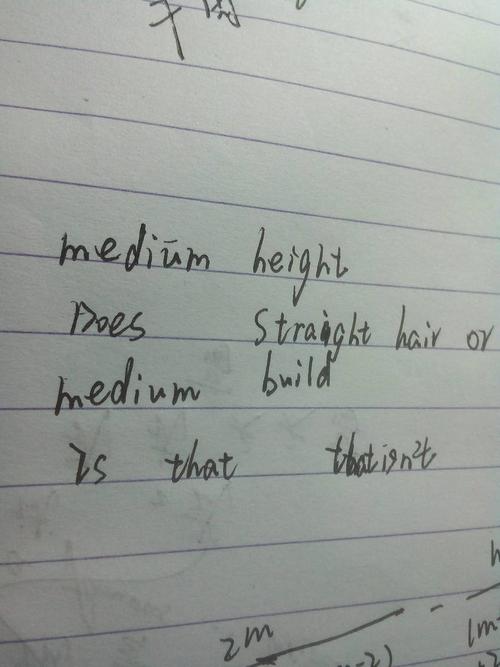 medium height
Does straight hair or
medium build
Is that that isn't
2m